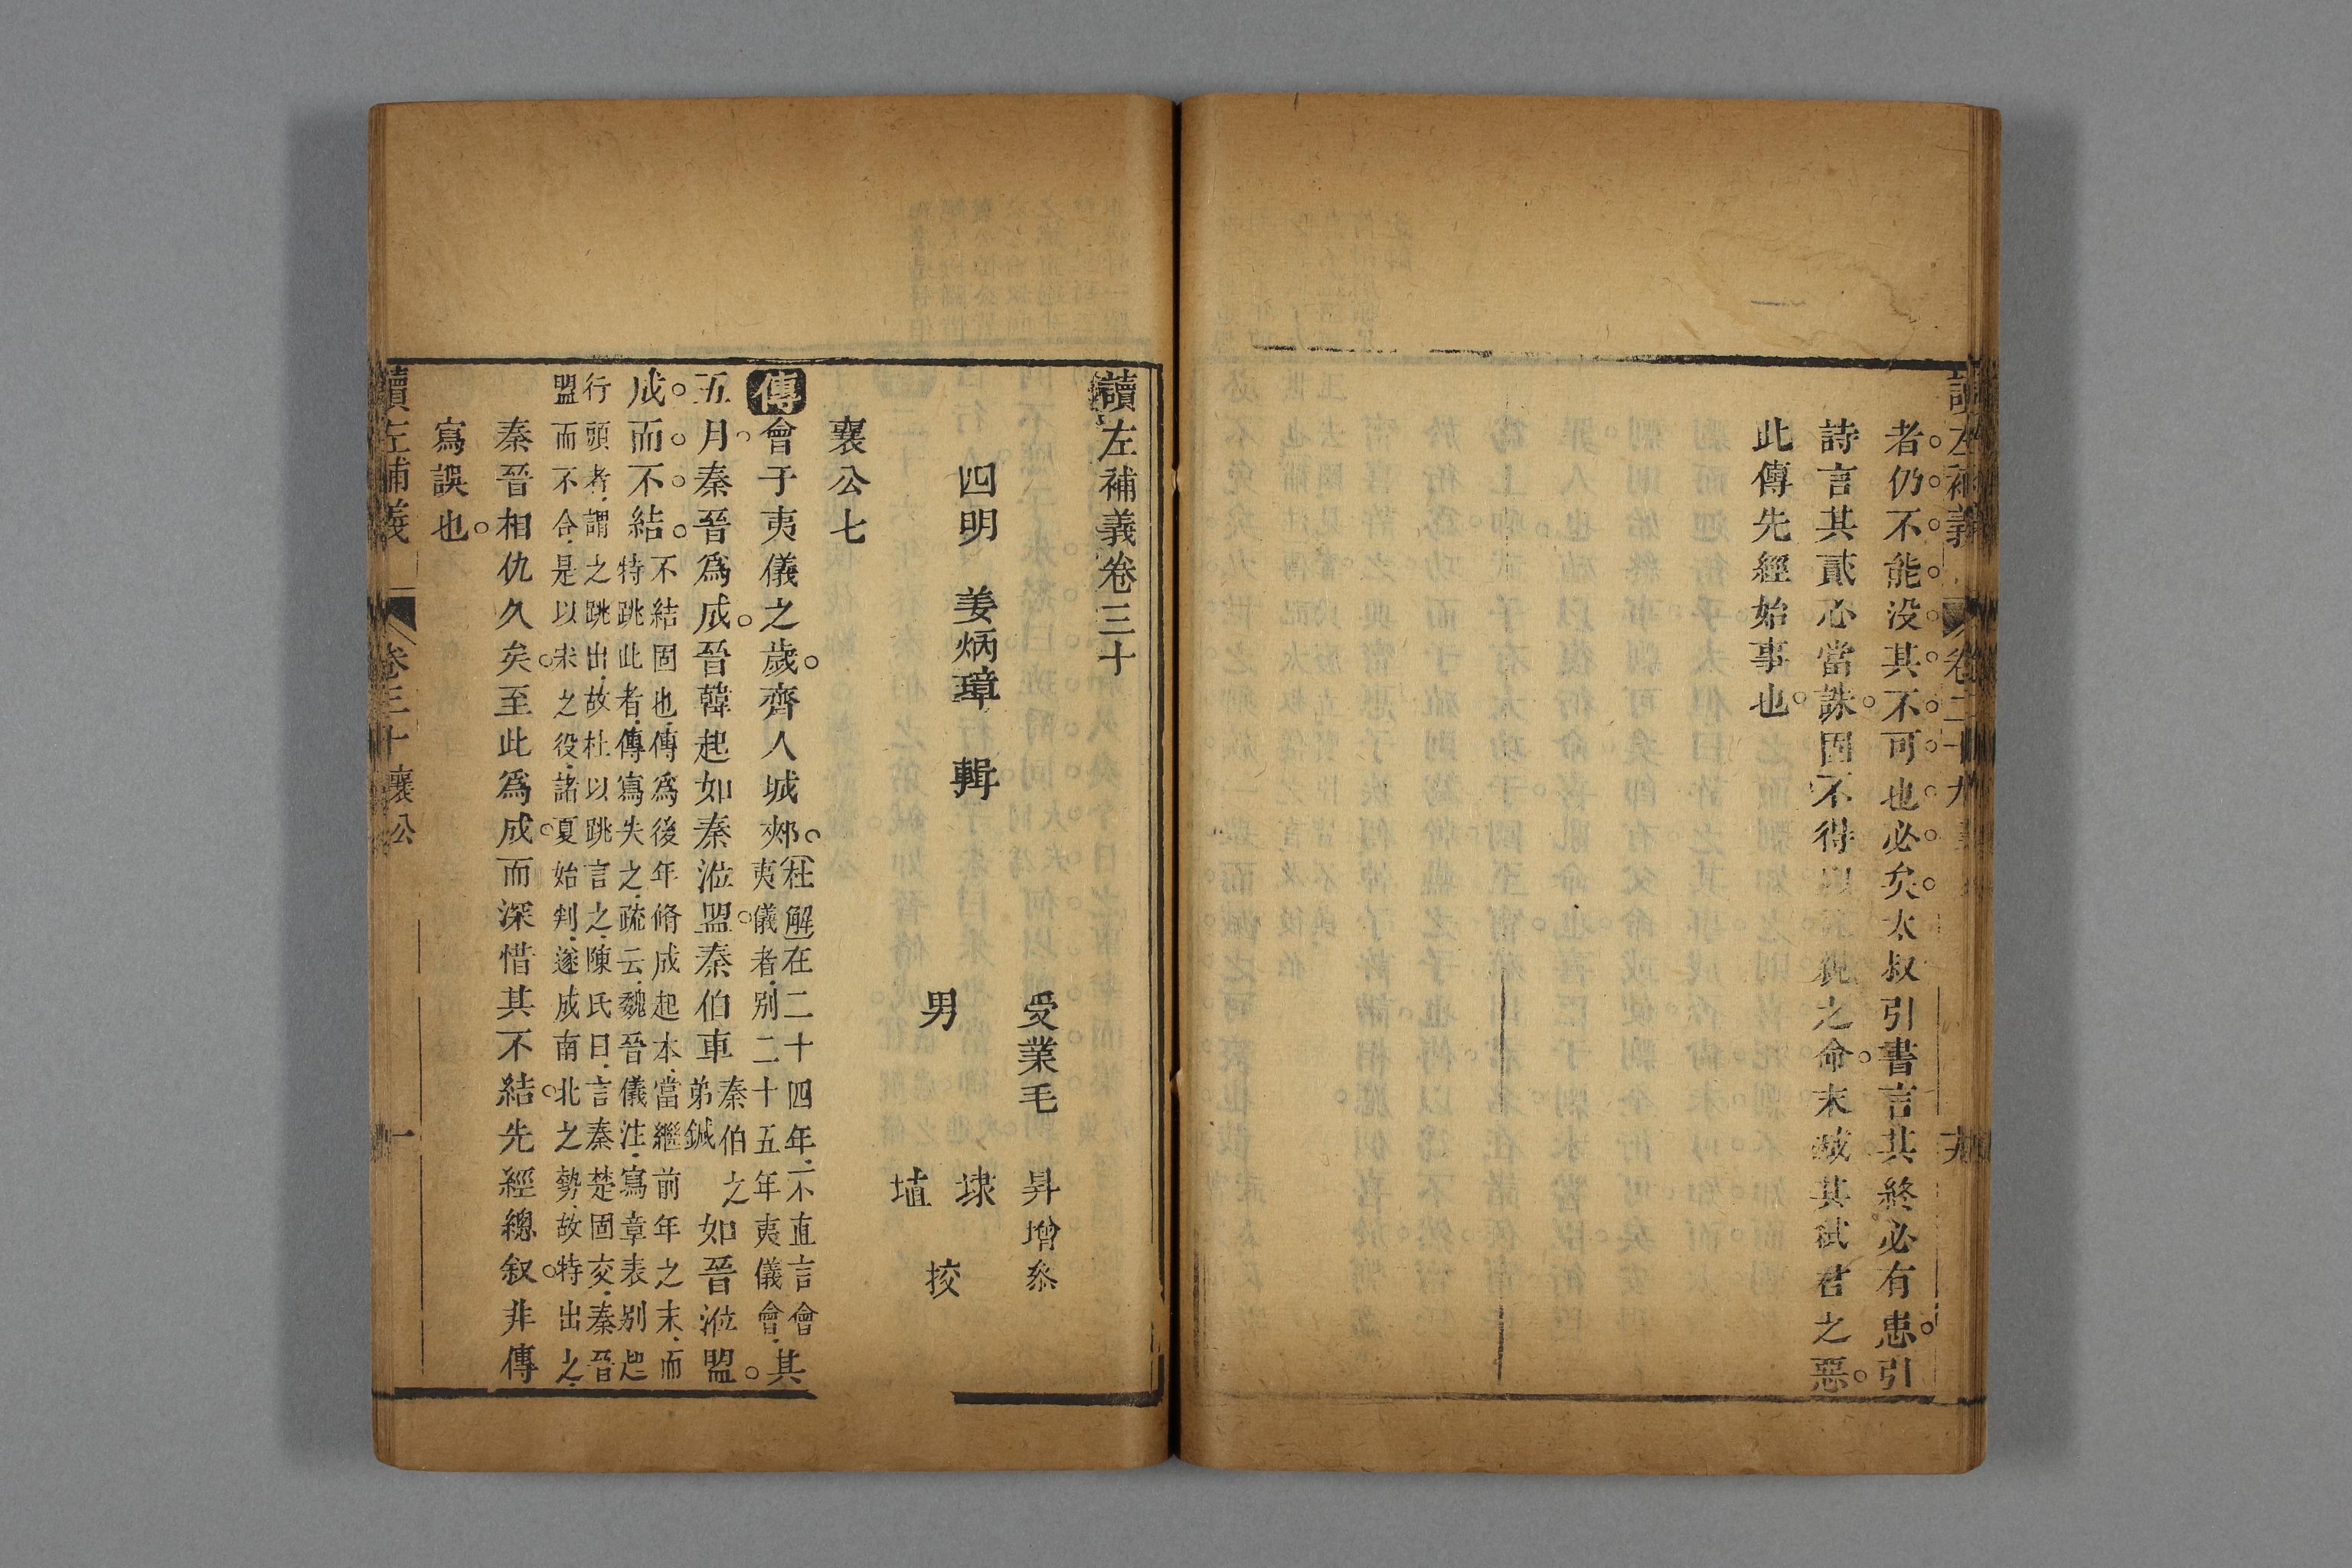 者仍不能没其不可也必矣太叔引書言其終必有患引
詩言其貳心當誅固不得以之命末減其弑君之惡
此傳先經始事也
讀左補義卷三十
受業毛昇增叅
四明姜炳璋輯
男埭埴挍
襄公七
傳會于夷儀之歲齊人城郟杜解在二十四年不直言會
夷儀者別二十五年夷儀會其
五月秦晉爲成晉韓起如秦涖盟秦伯車秦伯之
弟鍼如晉涖盟
成而不結不結固也傳爲後年脩成起本當繼前年之末而
特跳此者傳寫失之疏云魏晉儀注寫章表别起
行頭者謂之跳出故杜以跳言之陳氏曰言秦楚固交秦晉
盟而不合是以未之役諸夏始判遂成南北之勢故特出之
秦晉相仇久矣至此爲成而深惜其不結先經總叙非傳
寫誤也
讀左補義 卷三十 襄公 一